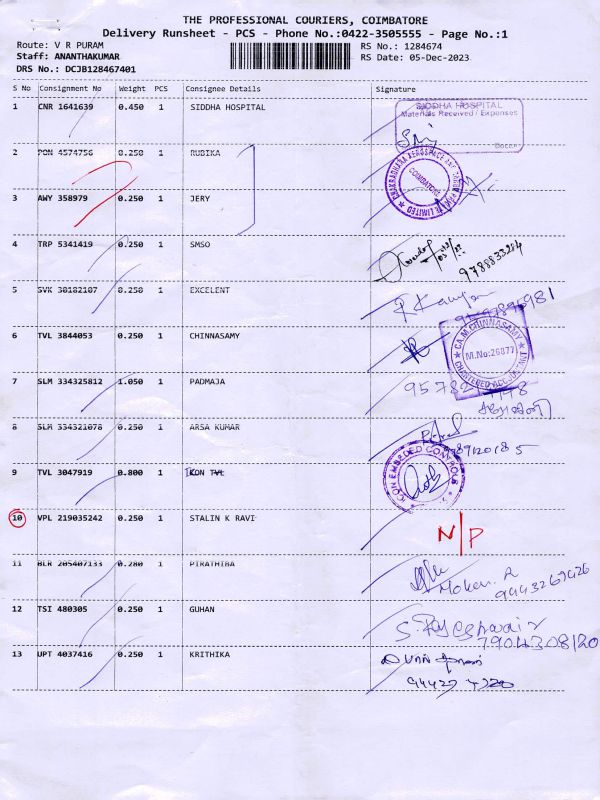 THE PROFESSIONAL COURIERS, COIMBATORE
Delivery Runsheet - PCS - Phone No.:0422-3505555 - Page No.:1
Route: V R PURAM
RS No.: 1284674
Staff: ANANTHAKUMAR
RS Date: 05-Dec-2023
DRS No.: DCJB128467401
S No Consignment No Weight PCS Consignee Details Signature
1 CNR 1641639 0.450 1 SIDDHA HOSPITAL
SIDDHA HOSPITAL
Materials Received / Expenses
2 PON 4574756 0.250 1 RUBIKA
COIMBATORE
PRIVATE LIMITED
3 AWY 358979 0.250 1 JERY
4 TRP 5341419 0.250 1 SMSO
5 SVK 38182187 0.250 1 EXCELENT
6 TVL 3844053 0.250 1 CHINNASAMY
CA.M.CHINNASAMY
M.No:26877
CHARTERED ACCOUNTANT
7 SLM 334325812 1.050 1 PADMAJA
8 SLM 334321078 0.250 1 ARSA KUMAR
9 TVL 3047919 0.800 1 KON TVL
ICON EMBEDDED CONTROLS
10 VPL 219035242 0.250 1 STALIN K RAVI
N/P
11 BLR 205407133 0.280 1 PIRATHIBA
Mohan. R
9443267426
12 TSI 480305 0.250 1 GUHAN
S. Rajeshwari
7904308120
13 UPT 4037416 0.250 1 KRITHIKA